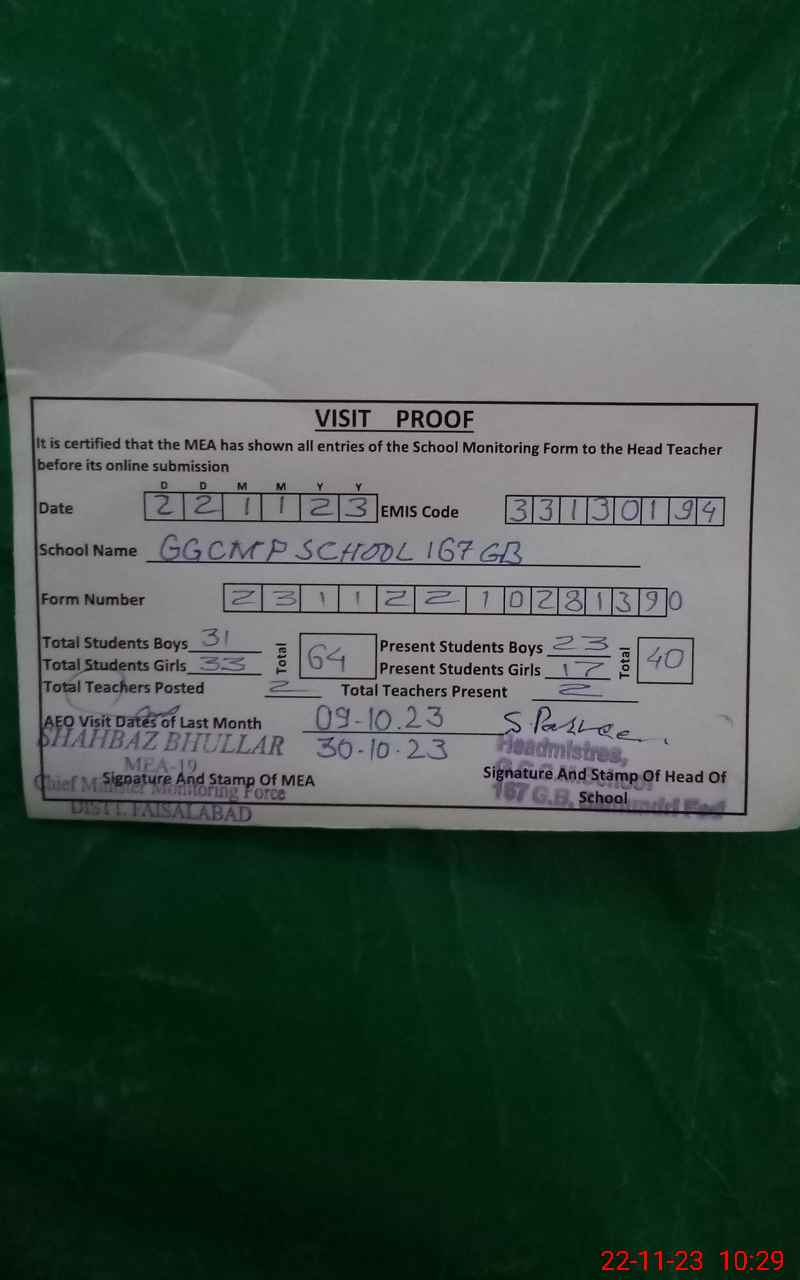 VISIT PROOF
It is certified that the MEA has shown all entries of the School Monitoring Form to the Head Teacher
before its online submission
D D M M Y Y
Date 2 2 1 1 2 3 EMIS Code 3 3 1 3 0 1 9 4
School Name GGCMP SCHOOL 167 GB
Form Number 2 3 1 1 2 2 1 0 2 8 1 3 9 0
Total Students Boys 31 Total 64 Present Students Boys 23 Total 40
Total Students Girls 33 Present Students Girls 17
Total Teachers Posted 2 Total Teachers Present 2
AEO Visit Dates of Last Month 09-10.23
30-10-23
SHAHBAZ BHULLAR
MEA-19
Signature And Stamp Of MEA
Chief Minister Monitoring Force
DISTT. FAISALABAD
Headmistres,
Signature And Stamp Of Head Of
School
167 G.B.
22-11-23 10:29